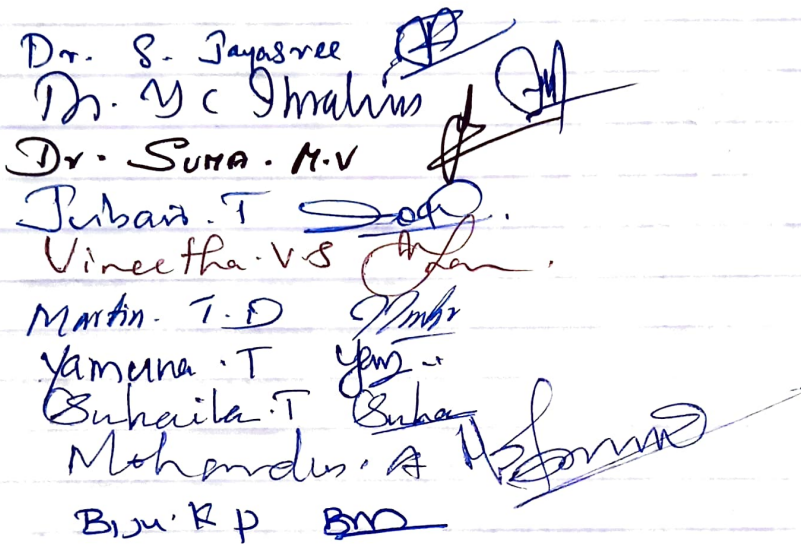 Dr. S. Jayasree
Dr. Y C Ibrahim
Dr. SUMA. M.V
Jubair. T
Vineetha. V.S
Martin. T.D
Yamuna. T Yam
Suhaila. T Suha
Mohandas. A
Biju. K P